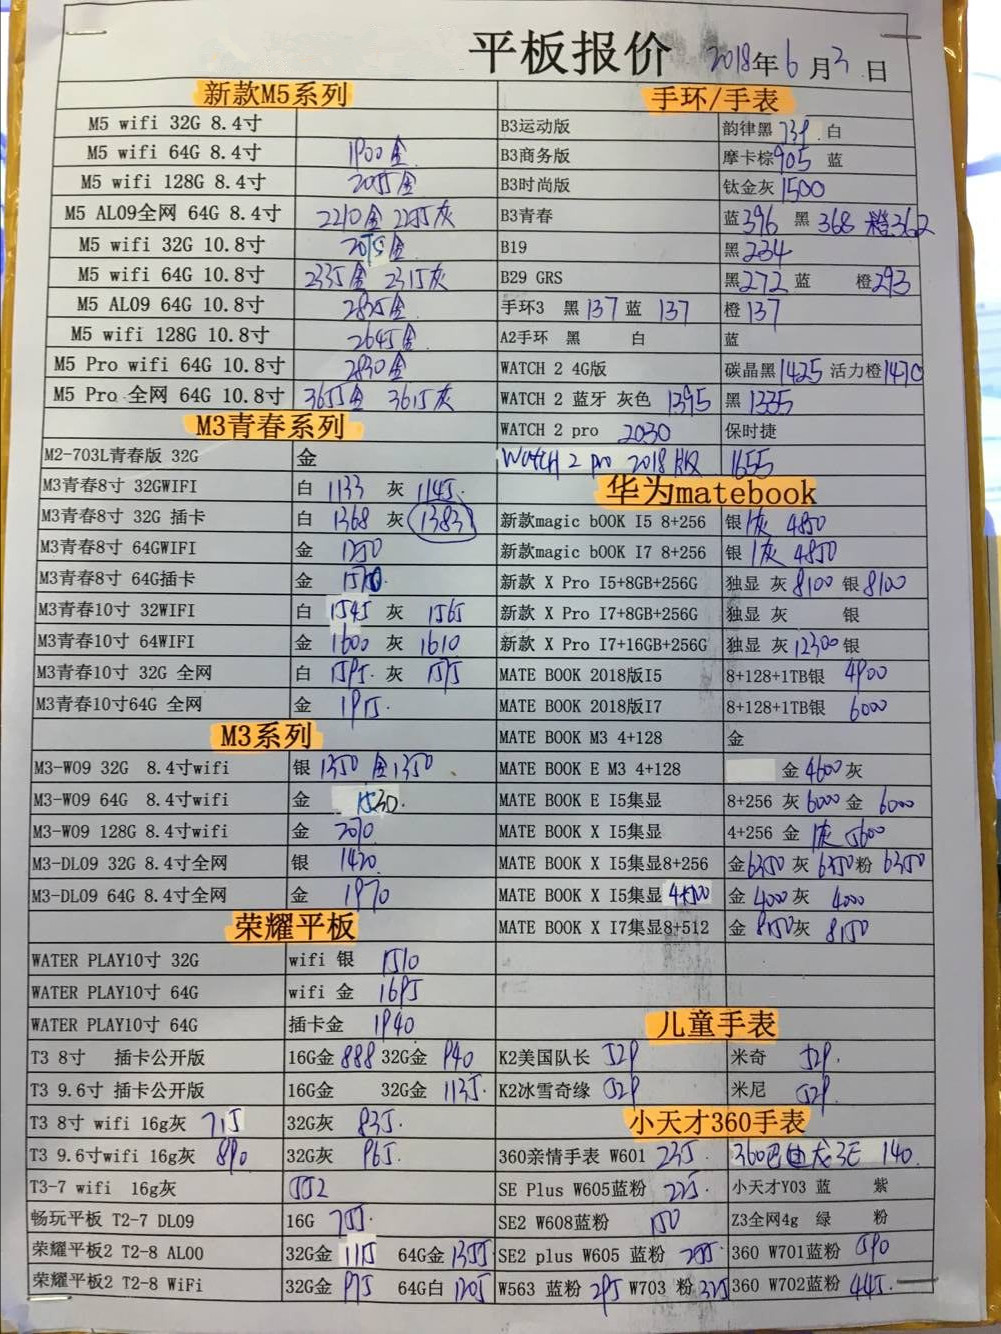 平板报价 2018年6月3日
新款M5系列
M5 wifi 32G 8.4寸
M5 wifi 64G 8.4寸 1900金
M5 wifi 128G 8.4寸 2055金
M5 AL09全网 64G 8.4寸 2210金 2255灰
M5 wifi 32G 10.8寸 2075金
M5 wifi 64G 10.8寸 2335金 2315灰
M5 AL09 64G 10.8寸 金
M5 wifi 128G 10.8寸 2645金
M5 Pro wifi 64G 10.8寸 金
M5 Pro 全网 64G 10.8寸 3655金 3615灰
M3青春系列
M2-703L青春版 32G 金
M3青春8寸 32GWIFI 白 1133 灰 1145.
M3青春8寸 32G 插卡 白 1368 灰 1383
M3青春8寸 64GWIFI 金 1250
M3青春8寸 64G插卡 金
M3青春10寸 32WIFI 白 1545 灰 1565
M3青春10寸 64WIFI 金 1600 灰 1610
M3青春10寸 32G 全网 白 1595. 灰 1595
M3青春10寸64G 全网 金 1915.
M3系列
M3-W09 32G 8.4寸wifi 银 1350 金1350
M3-W09 64G 8.4寸wifi 金 1530.
M3-W09 128G 8.4寸wifi 金 2070
M3-DL09 32G 8.4寸全网 银 1420
M3-DL09 64G 8.4寸全网 金 1970
荣耀平板
WATER PLAY10寸 32G wifi 银 1510
WATER PLAY10寸 64G wifi 金 1695
WATER PLAY10寸 64G 插卡金 1940
T3 8寸 插卡公开版 16G金 888 32G金 940
T3 9.6寸 插卡公开版 16G金 32G金 1135.
T3 8寸 wifi 16g灰 715 32G灰 835.
T3 9.6寸wifi 16g灰 890 32G灰 965.
T3-7 wifi 16g灰 552
畅玩平板 T2-7 DL09 16G 755.
荣耀平板2 T2-8 AL00 32G金 1115 64G金 1355
荣耀平板2 T2-8 WiFi 32G金 975 64G白 1205
手环/手表
B3运动版 韵律黑 739. 白
B3商务版 摩卡棕905 蓝
B3时尚版 钛金灰 1500
B3青春 蓝396 黑 368 橙362
B19 黑234
B29 GRS 黑272 蓝 橙293
手环3 黑 137 蓝 137 橙 137
A2手环 黑 白 蓝
WATCH 2 4G版 碳晶黑1425 活力橙1470
WATCH 2 蓝牙 灰色 1395 黑 1335
WATCH 2 pro 2030 保时捷
WATCH 2 pro 2018版 1655
华为matebook
新款magic bOOK I5 8+256 银 灰 4850
新款magic bOOK I7 8+256 银 灰 4850
新款 X Pro I5+8GB+256G 独显 灰 8100 银8100
新款 X Pro I7+8GB+256G 独显 灰 银
新款 X Pro I7+16GB+256G 独显 灰 12300 银
MATE BOOK 2018版I5 8+128+1TB银 4900
MATE BOOK 2018版I7 8+128+1TB银 6000
MATE BOOK M3 4+128 金
MATE BOOK E M3 4+128 金 4600灰
MATE BOOK E I5集显 8+256 灰 6000 金 6000
MATE BOOK X I5集显 4+256 金 灰 5600
MATE BOOK X I5集显8+256 金6350 灰 6350粉 6350
MATE BOOK X I5集显 金 4000 灰 4000
MATE BOOK X I7集显8+512 金 8150灰 8150
儿童手表
K2美国队长 529 米奇 529.
K2冰雪奇缘 529 米尼 529.
小天才360手表
360亲情手表 W601 235. 360巴迪龙3E 140.
SE Plus W605蓝粉 225. 小天才Y03 蓝 紫
SE2 W608蓝粉 150 Z3全网4g 绿 粉
SE2 plus W605 蓝粉 255. 360 W701蓝粉 590
W563 蓝粉 295 W703 粉 325 360 W702蓝粉 445.